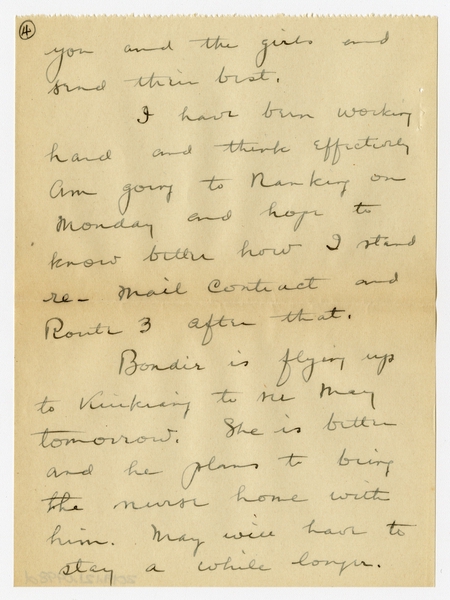 4
you and the girls and
send their best.
I have been working
hard and think effectively
Am going to Nanking on
Monday and hope to
know better how I stand
re- Mail Contract and
Route 3 after that.
Bondir is flying up
to Kiukiang to see May
tomorrow. She is better
and he plans to bring
the nurse home with
him. May will have to
stay a while longer.